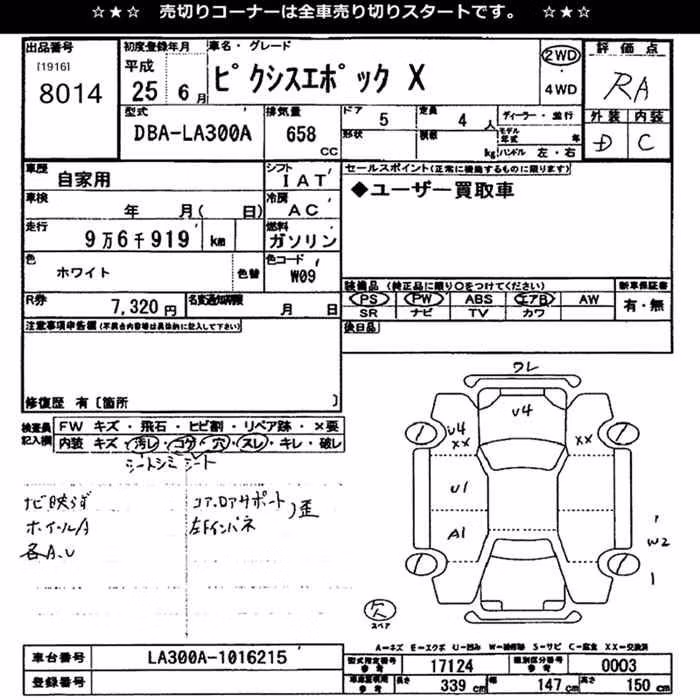 ☆★☆ 売切りコーナーは全車売り切りスタートです。 ☆★☆
出品番号 初度登録年月 車名・グレード 評価点
[1916] 8014 平成 25 6月 ピクシスエポック X 2WD 4WD RA
型式 排気量 ドア 5 定員 4人 ディーラー・並行 外装 内装
DBA-LA300A 658 CC 形状 積載 kg モデル年式 年 ハンドル 左・右 D C
車歴 シフト セールスポイント(正常に機能するものに限ります)
自家用 IAT ◆ユーザー買取車
車検 年 月( 日) 冷房 AC
走行 9万6千919 km 燃料 ガソリン
色 ホワイト 色替 色コード W09
装備品 (純正品に限り○をつけてください) 新車保証書
PS PW ABS エアB AW 有・無
SR ナビ TV カワ
R券 7,320円 名変通知期限 月 日 後日品
注意事項申告欄(不具合内容等は具体的に記入して下さい)
修復歴 有〔箇所 〕
検査員記入欄 FW キズ・飛石・ヒビ割・リペア跡・×要
内装 キズ・汚レ・コゲ・穴・スレ・キレ・破レ
シートシミ シート
ナビ映らず コアロアサポート 歪
ホイールA 左Fインパネ
各A.U
ワレ
U4
U4 XX XX
U1
A1
W2
欠
スペア
A-キズ E-エクボ U-凹み W-補修跡 S-サビ C-腐食 XX-交換済
車台番号 LA300A-1016215 型式指定番号 参考 17124 類別区分番号 参考 0003
登録番号 車庫証明用 参考 長さ 339cm 幅 147cm 高さ 150cm